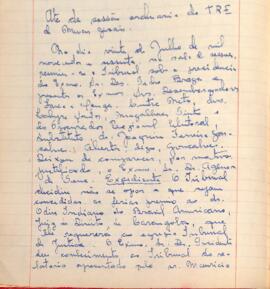 Ata da sessão ordinaria do TRE
de Minas Gerais.
Ao dia vinte de Julho de mil
novecentos e sessenta, na sala de sessões,
reuniu-se o Tribunal sob a presidencia
do Exmo. Sr. Des. Braga e
presentes os Exmos. Srs. Desembargadores
Preto, drs.
Santos, Magalhães Pinto e
o Procurador Regional Eleitoral
substituto dr. Joaquim Ferreira Gon-
calves. Alberto, digo, Gonçalves.
Deixou de comparecer, por motivo
justificado o Exmo. Sr. Dr.
Sena. Expediente O Tribunal
decidiu não se opor a que sejam
concedidas as ferias premio ao dr.
Odin Indiano do Brasil Americano,
Juiz de Direito de Carangola, que
requererá ao egregio Tribunal
de Justiça. O Exmo. Sr. Dr. Presidente
deu conhecimento ao Tribunal do re-
latorio apresentado pelo sr. Mauricio